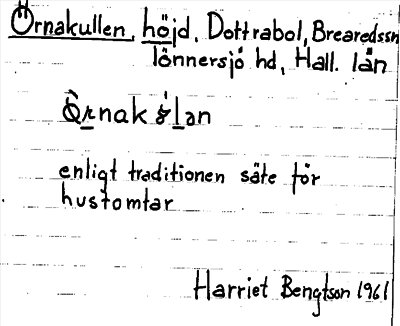 Örnakullen, höjd, Dottrabol, Brearedssn
Tönnersjö hd, Hall. län
enligt traditionen säte för
hustomtar
Harriet Bengtson 1961